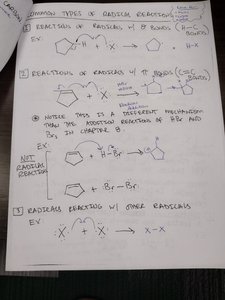 COMMON TYPES OF RADICAL REACTIONS
1 REACTIONS OF RADICALS W/ σ BONDS (H-C BONDS)
EX:
H + ·X → + H-X
2 REACTIONS OF RADICALS W/ π BONDS (C=C BONDS)
+ ·X →
Radical Addition
* NOTICE THIS IS A DIFFERENT MECHANISM
THAN THE ADDITION REACTIONS OF HBr AND
Br₂ IN CHAPTER 8.
EX:
NOT RADICAL REACTION
+ H-Br: →
+ :Br-Br:
3 RADICALS REACTING W/ OTHER RADICALS
EX:
:X· + ·X: → X-X
CARBON